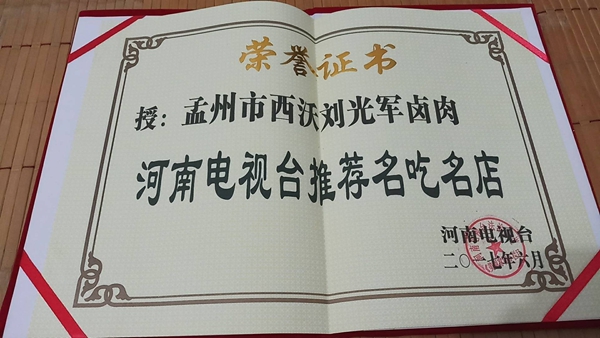 荣誉证书
授：孟州市西沃刘光军卤肉
河南电视台推荐名吃名店
河南电视台
二〇一七年六月